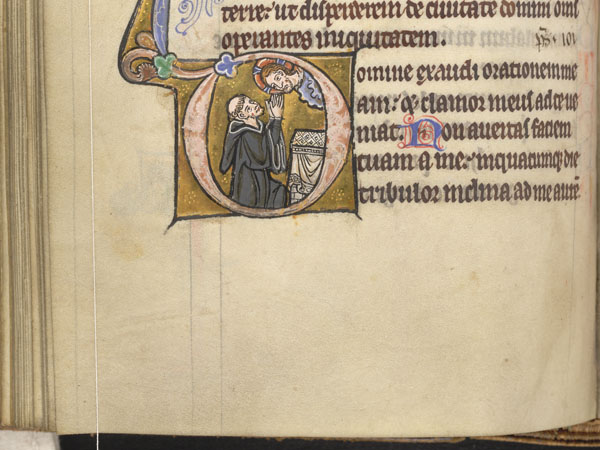 terre: ut disperderem de ciuitate domini om̅s
operantes iniquitatem.
Domine exaudi orationem me
am: ⁊ clamor meus ad te ue
niat. Non auertas faciem
tuam a me: inquacunq; die
tribulor inclina ad me aurē